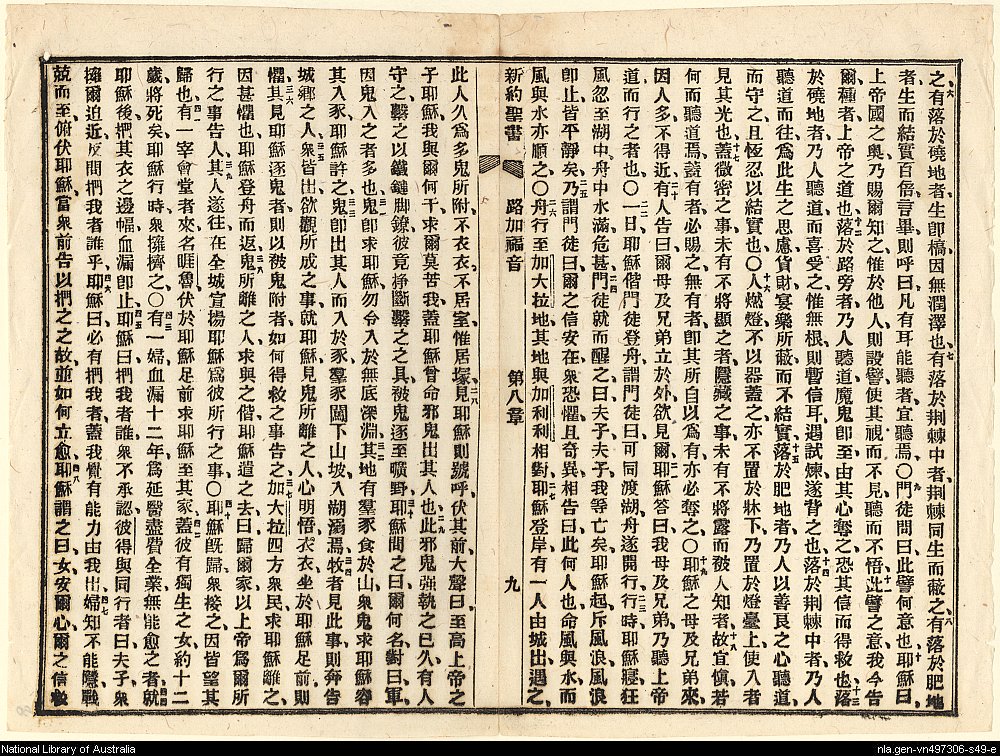 之有落於磽地者生卽槁因無潤澤也有落於荆棘中者荆棘同生而蔽之有落於肥地
者生而結實百倍言畢則呼曰凡有耳能聽者宜聽焉〇門徒問曰此譬何意也耶穌曰
上帝國之奥乃賜爾知之惟於他人則設譬使其視而不見聽而不悟此譬之意我今告
爾種者上帝之道也落於路旁者乃人聽道魔鬼卽至由其心奪之恐其信而得救也落
於磽地者乃人聽道而喜受之惟無根則暫信耳遇試煉遂背之也落於荆棘中者乃人
聽道而往爲此生之思慮貨財宴樂所蔽而不結實落於肥地者乃人以善良之心聽道
而守之且恆忍以結實也〇人燃燈不以器蓋之亦不置於牀下乃置於燈臺上使入者
見其光也蓋微密之事未有不將顯之者隱藏之事未有不將露而被人知者故宜愼若
何而聽道焉蓋有者必賜之無有者卽其所自以爲有亦必奪之〇耶穌之母及兄弟來
因人多不得近有人告曰爾母及兄弟立於外欲見爾耶穌答曰我母及兄弟乃聽上帝
道而行之者也〇一日耶穌偕門徒登舟謂門徒曰可同渡湖舟遂開行行時耶穌寢狂
風忽至湖中舟中水滿危甚門徒就而醒之曰夫子夫子我等亡矣耶穌起斥風浪風浪
卽止皆平靜矣乃謂門徒曰爾之信安在衆恐懼且奇異相告曰此何人也命風與水而
風與水亦順之〇舟行至加大拉地其地與加利利相對耶穌登岸有一人由城出遇之
新約聖書 路加福音 第八章 九
此人久爲多鬼所附不衣衣不居室惟居塚見耶穌則號呼伏其前大聲曰至高上帝之
子耶穌我與爾何干求爾莫苦我蓋耶穌曾命邪鬼出其人也此邪鬼強執之已久有人
守之繫之以鐵鏈脚鐐彼竟掙斷繫之之具被鬼逐至曠野耶穌問之曰爾何名對曰軍
因鬼入之者多也鬼卽求耶穌勿令入於無底深淵其地有羣豕食於山衆鬼求耶穌容
其入豕耶穌許之鬼卽出其人而入於豕羣豕闖下山坡入湖溺焉牧者見此事則奔告
城鄉之人衆皆出欲觀所成之事就耶穌見鬼所離之人心明悟衣衣坐於耶穌足前則
懼其見耶穌逐鬼者則以被鬼附者如何得救之事告之加大拉四方衆民求耶穌離之
因甚懼也耶穌登舟而返鬼所離之人求與之偕耶穌遣之去曰歸爾家以上帝爲爾所
行之事告人其人遂往在全城宣揚耶穌爲彼所行之事〇耶穌旣歸衆接之因皆望其
歸也有一宰會堂者來名睚魯伏於耶穌足前求耶穌至其家蓋彼有獨生之女約十二
歲將死矣耶穌行時衆擁擠之〇有一婦血漏十二年爲延醫盡費全業無能愈之者就
耶穌後捫其衣之邊幅血漏卽止耶穌曰捫我者誰衆不承認彼得與同行者曰夫子衆
擁爾迫近反問捫我者誰乎耶穌曰必有捫我者蓋我覺有能力由我出婦知不能隱戰
兢而至俯伏耶穌當衆前告以捫之之故並如何立愈耶穌謂之曰女安爾心爾之信救
National Library of Australia
nla.gen-vn497306-s49-e